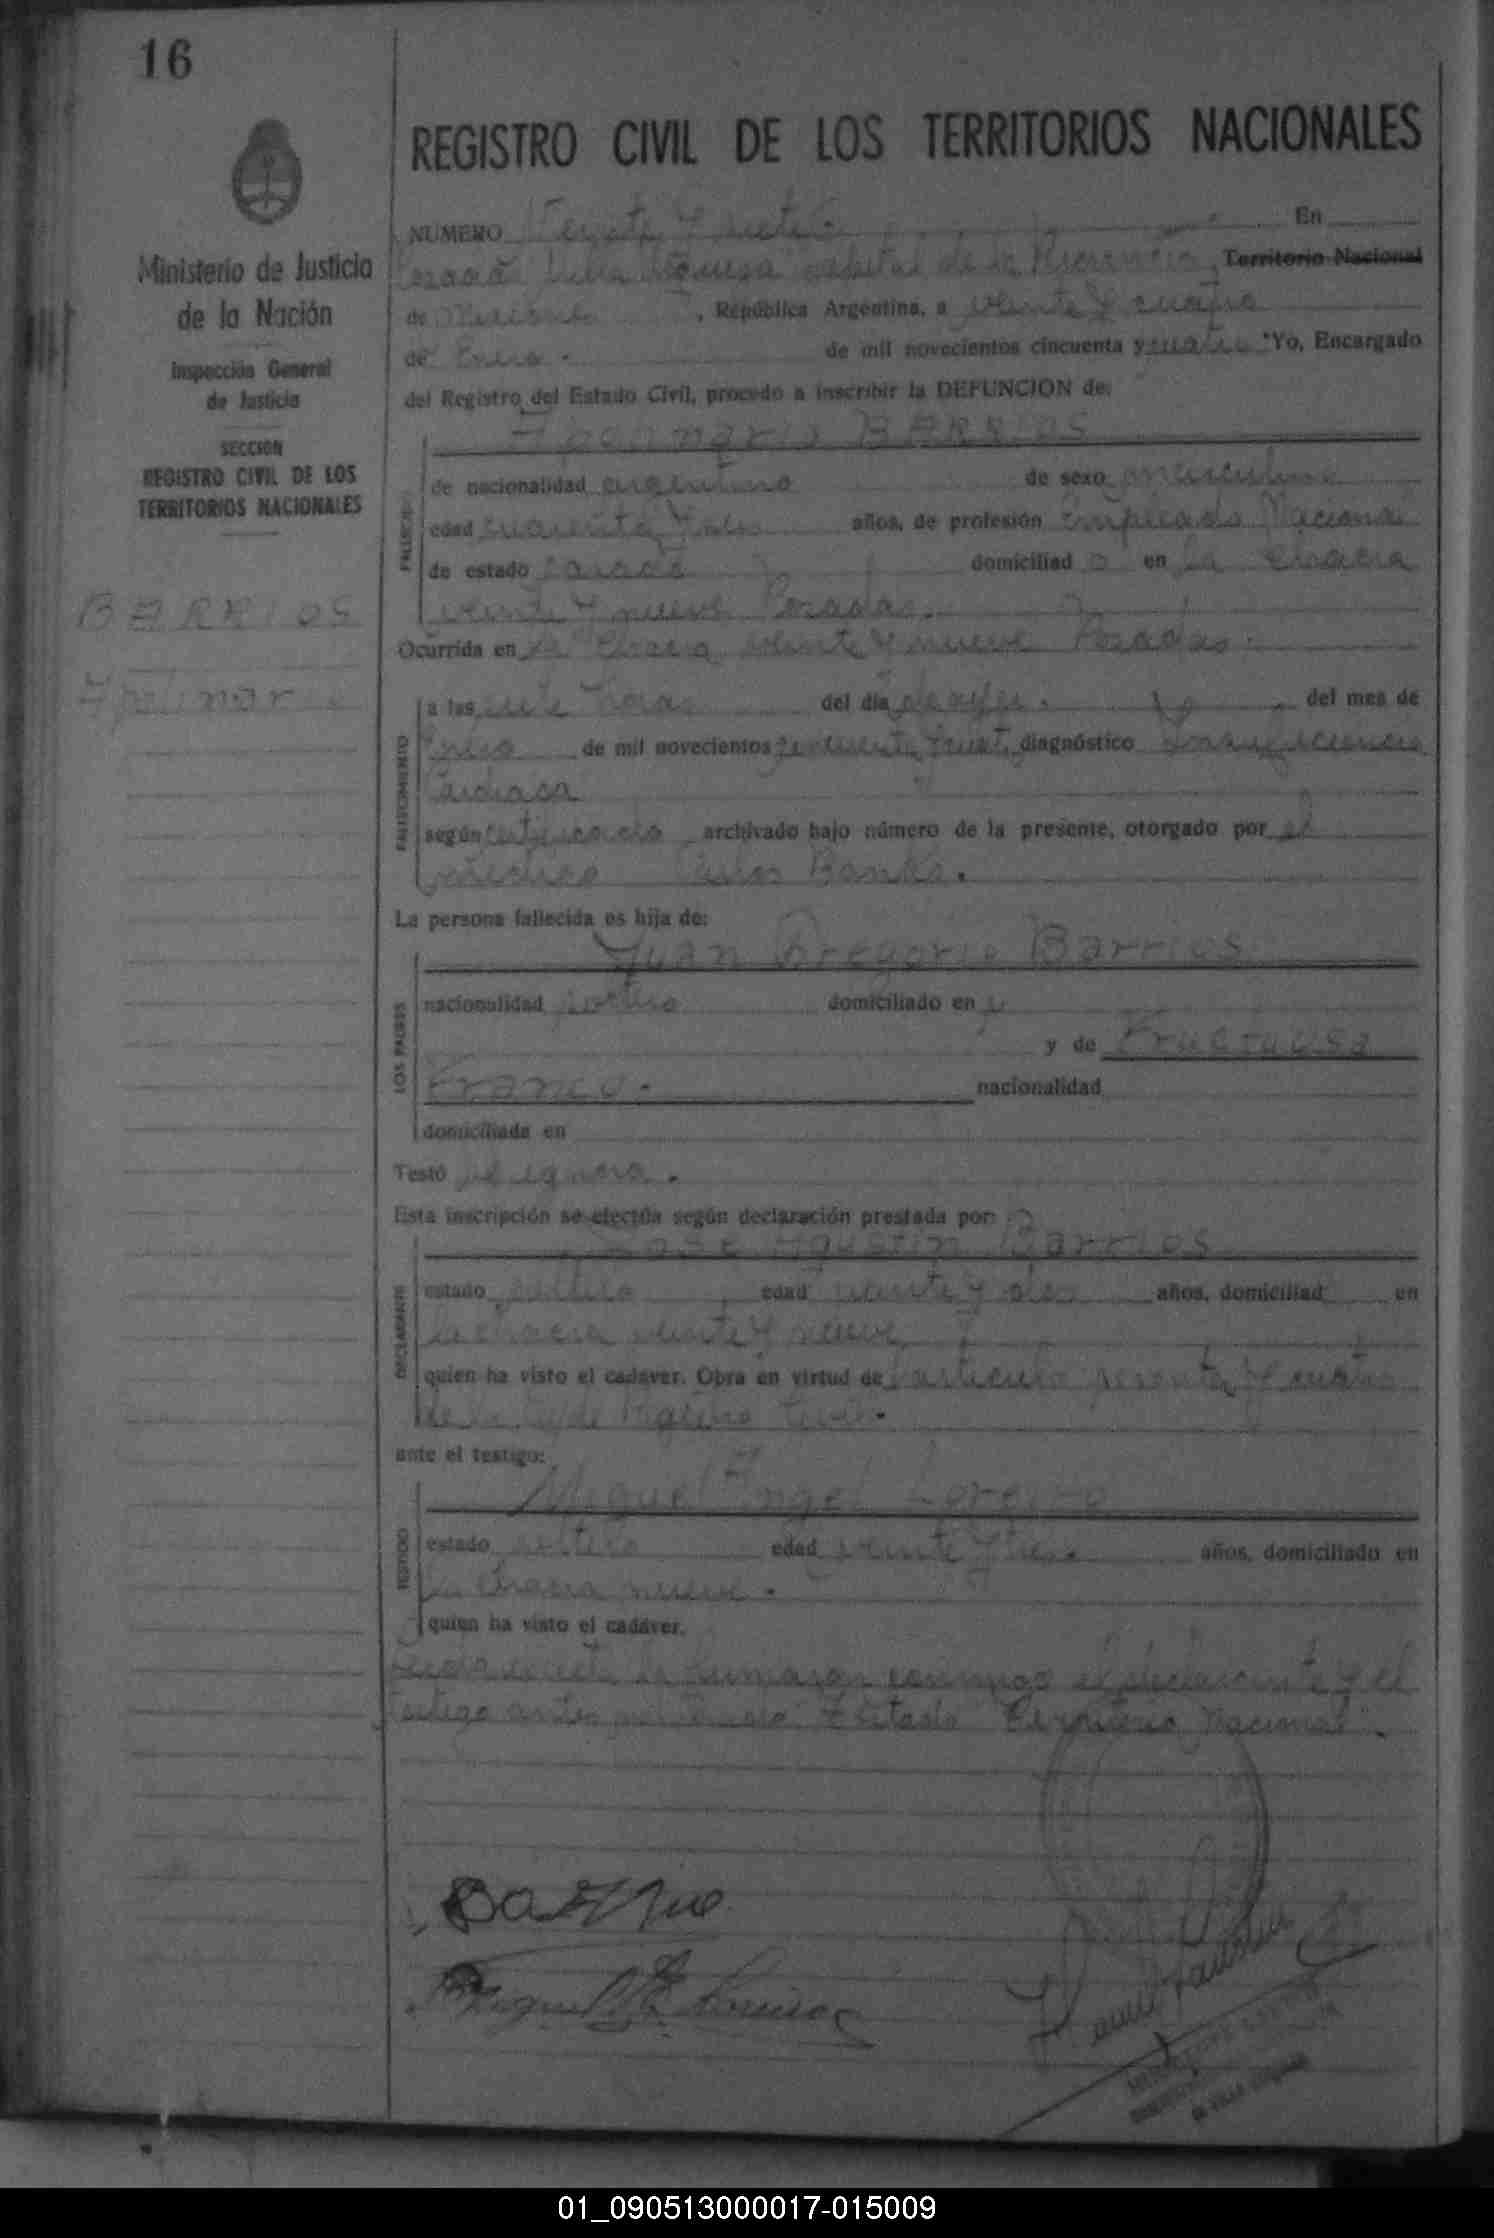 16
REGISTRO CIVIL DE LOS TERRITORIOS NACIONALES
Ministerio de Justicia
de la Nación
Inspección General
de Justicia
SECCION
REGISTRO CIVIL DE LOS
TERRITORIOS NACIONALES
BARRIOS
Apolinario
NUMERO Veinte y siete En
Posadas Villa capital de la Provincia, Territorio Nacional
de Misiones, República Argentina, a veinte y cuatro
de Enero de mil novecientos cincuenta y cuatro Yo, Encargado
del Registro del Estado Civil, procedo a inscribir la DEFUNCION de:
BARRIOS
FALLECIDO
de nacionalidad argentino de sexo masculino
edad cuarenta y dos años, de profesión Empleado Nacional
de estado casado domiciliado en la chacra
veinte y nueve Posadas.
Ocurrida en la chacra veinte y nueve Posadas.
FALLECIMIENTO
a las siete horas del día de ayer. del mes de
Enero de mil novecientos cincuenta y cuatro, diagnóstico Insuficiencia
Cardiaca
según certificado archivado bajo número de la presente, otorgado por el
médico Carlos
La persona fallecida es hija de:
LOS PADRES
Juan Gregorio Barrios
nacionalidad domiciliado en
y de Fructuosa
Franco. nacionalidad
domiciliada en
Testó Se ignora.
Esta inscripción se efectúa según declaración prestada por:
DECLARANTE
José Agustín Barrios
estado soltero edad veinte y dos años, domiciliad en
la chacra veinte y nueve
quien ha visto el cadáver. Obra en virtud de artículo sesenta y cuatro
de la ley de Registro Civil.
ante el testigo:
TESTIGO
Miguel Angel
estado soltero edad veinte y tres. años, domiciliado en
la chacra nueve.
quien ha visto el cadáver.
Leida el acta la firmaron conmigo el declarante y el
testigo antes Testado Territorio Nacional.
01_090513000017-015009